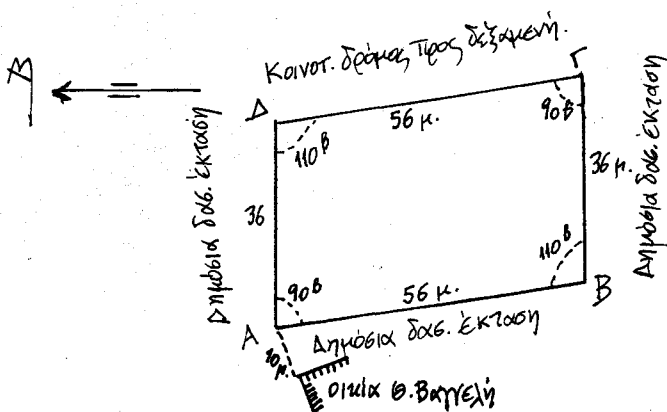 Κοινοτ. δρόμος προς δεξαμενή.
Β
Δ
Γ
56 μ.
110ᵝ
90ᵝ
Δημόσια δασ. έκταση
36
36 μ.
Δημόσια δασ. έκταση
90ᵝ
110ᵝ
56 μ.
Α
Β
Δημόσια δασ. έκταση
10μ.
οικία Θ. Βαγγελή